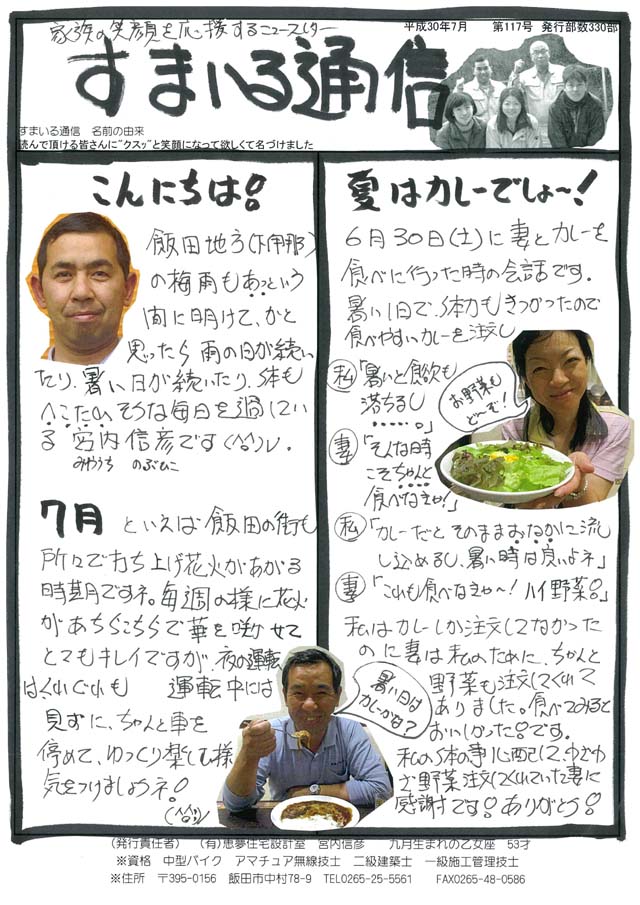 家族の笑顔を応援するニュースレター
平成30年7月 第117号 発行部数330部
すまいる通信
すまいる通信 名前の由来
読んで頂ける皆さんに"クスッ"と笑顔になって欲しくて名づけました
こんにちは!
飯田地方(下伊那)
の梅雨もあっという
間に明けて、かと
思ったら雨の日が続い
たり、暑い日が続いたり、体も
へこたれそうな毎日を過している
宮内信彦です(^^)ν.
みやうち のぶひこ
7月 といえば飯田の街も
所々で打ち上げ花火があがる
時期ですネ。毎週の様に花火
があちらこちらで華を咲かせて
とてもキレイですが、夜の運転
はくれぐれも 運転中には
見ずに、ちゃんと車を
停めて、ゆっくり楽しむ様
気をつけましょうネ!
(^^)ν
夏はカレーでしょ〜!
6月30日(土)に妻とカレーを
食べに行った時の会話です.
暑い1日で、体力もきつかったので
食べやすいカレーを注文し
私「暑いと食欲も
落ちるし
……。」
妻「そんな時
こそちゃんと
食べなきゃ!」
お野菜も
ど〜ぞ!
私「カレーだとそのままおなかに流し
込めるし、暑い時は良いよネ」
妻「これも食べなきゃ〜!ハイ野菜!」
私はカレーしか注文してなかった
のに妻は私のために、ちゃんと
野菜も注文してくれて
ありました。食べてみると
おいしかった!です.
私の体の事心配して、ゆざゆ
ざ野菜注文してくれていた妻に
感謝です!ありがとう!
暑い日は
カレーかね?
(発行責任者) (有)恵夢住宅設計室 宮内信彦 九月生まれの乙女座 53才
※資格 中型バイク アマチュア無線技士 二級建築士 一級施工管理技士
※住所 〒395-0156 飯田市中村78-9 TEL0265-25-5561 FAX0265-48-0586